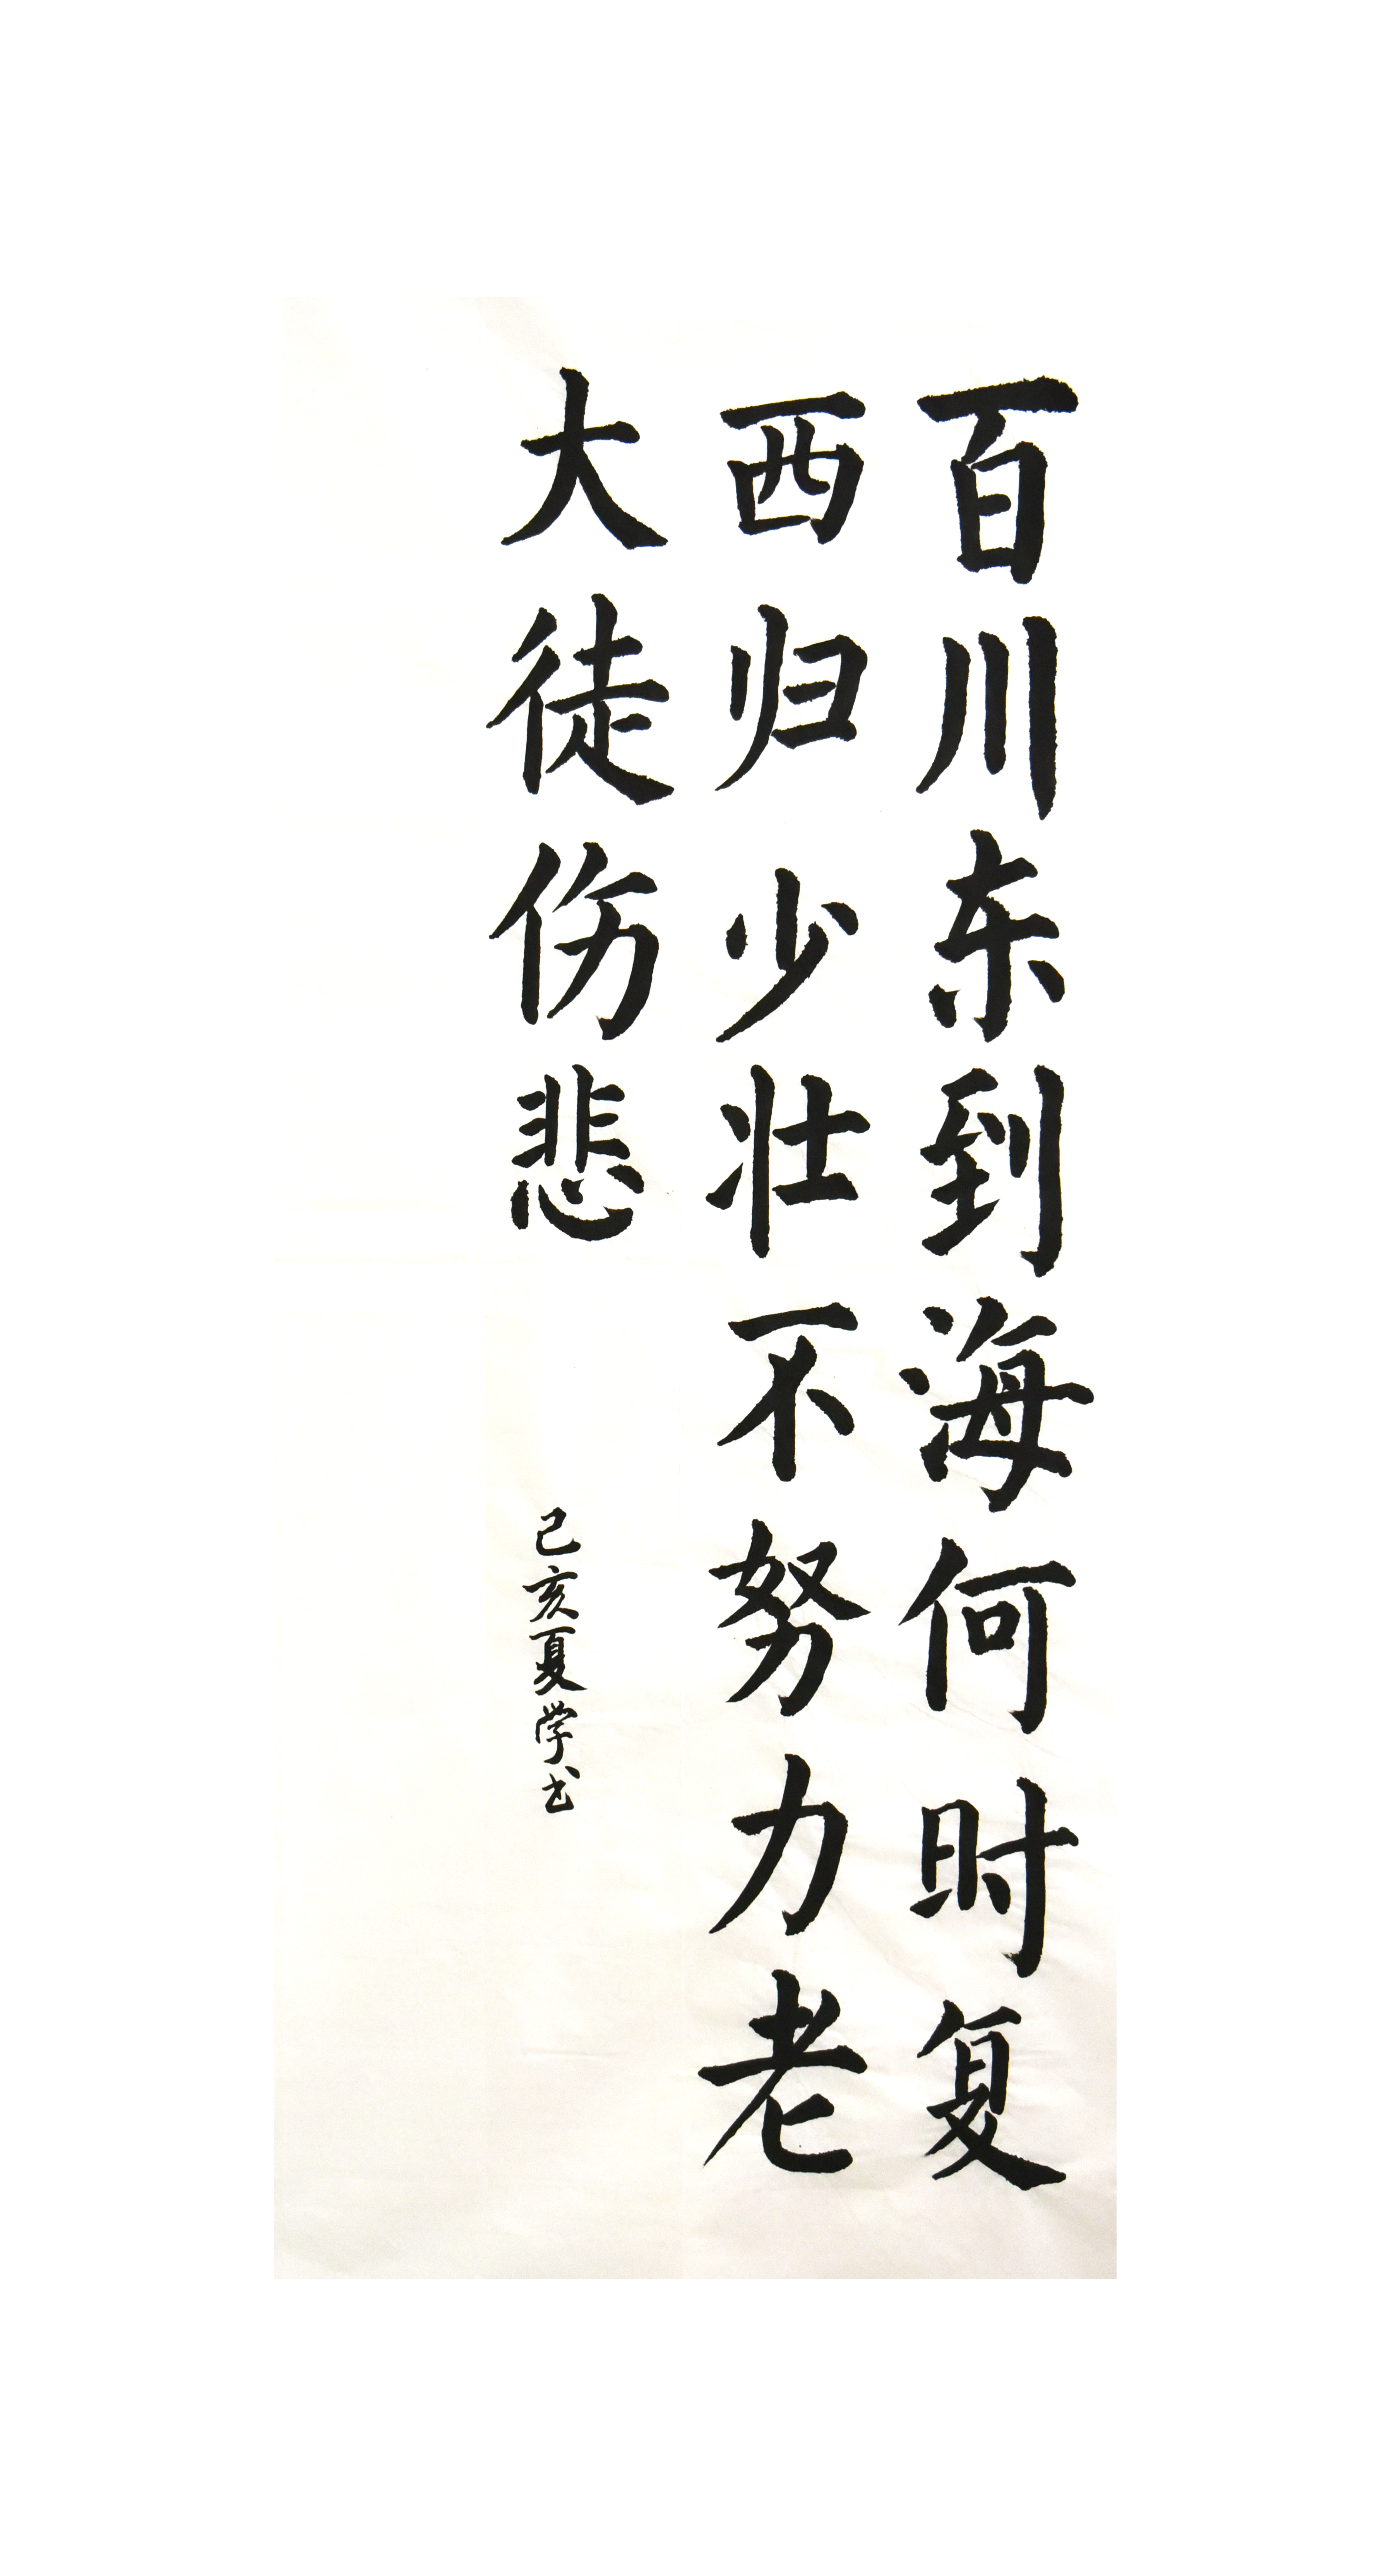 百川东到海何时复
西归少壮不努力老
大徒伤悲
己亥夏学书